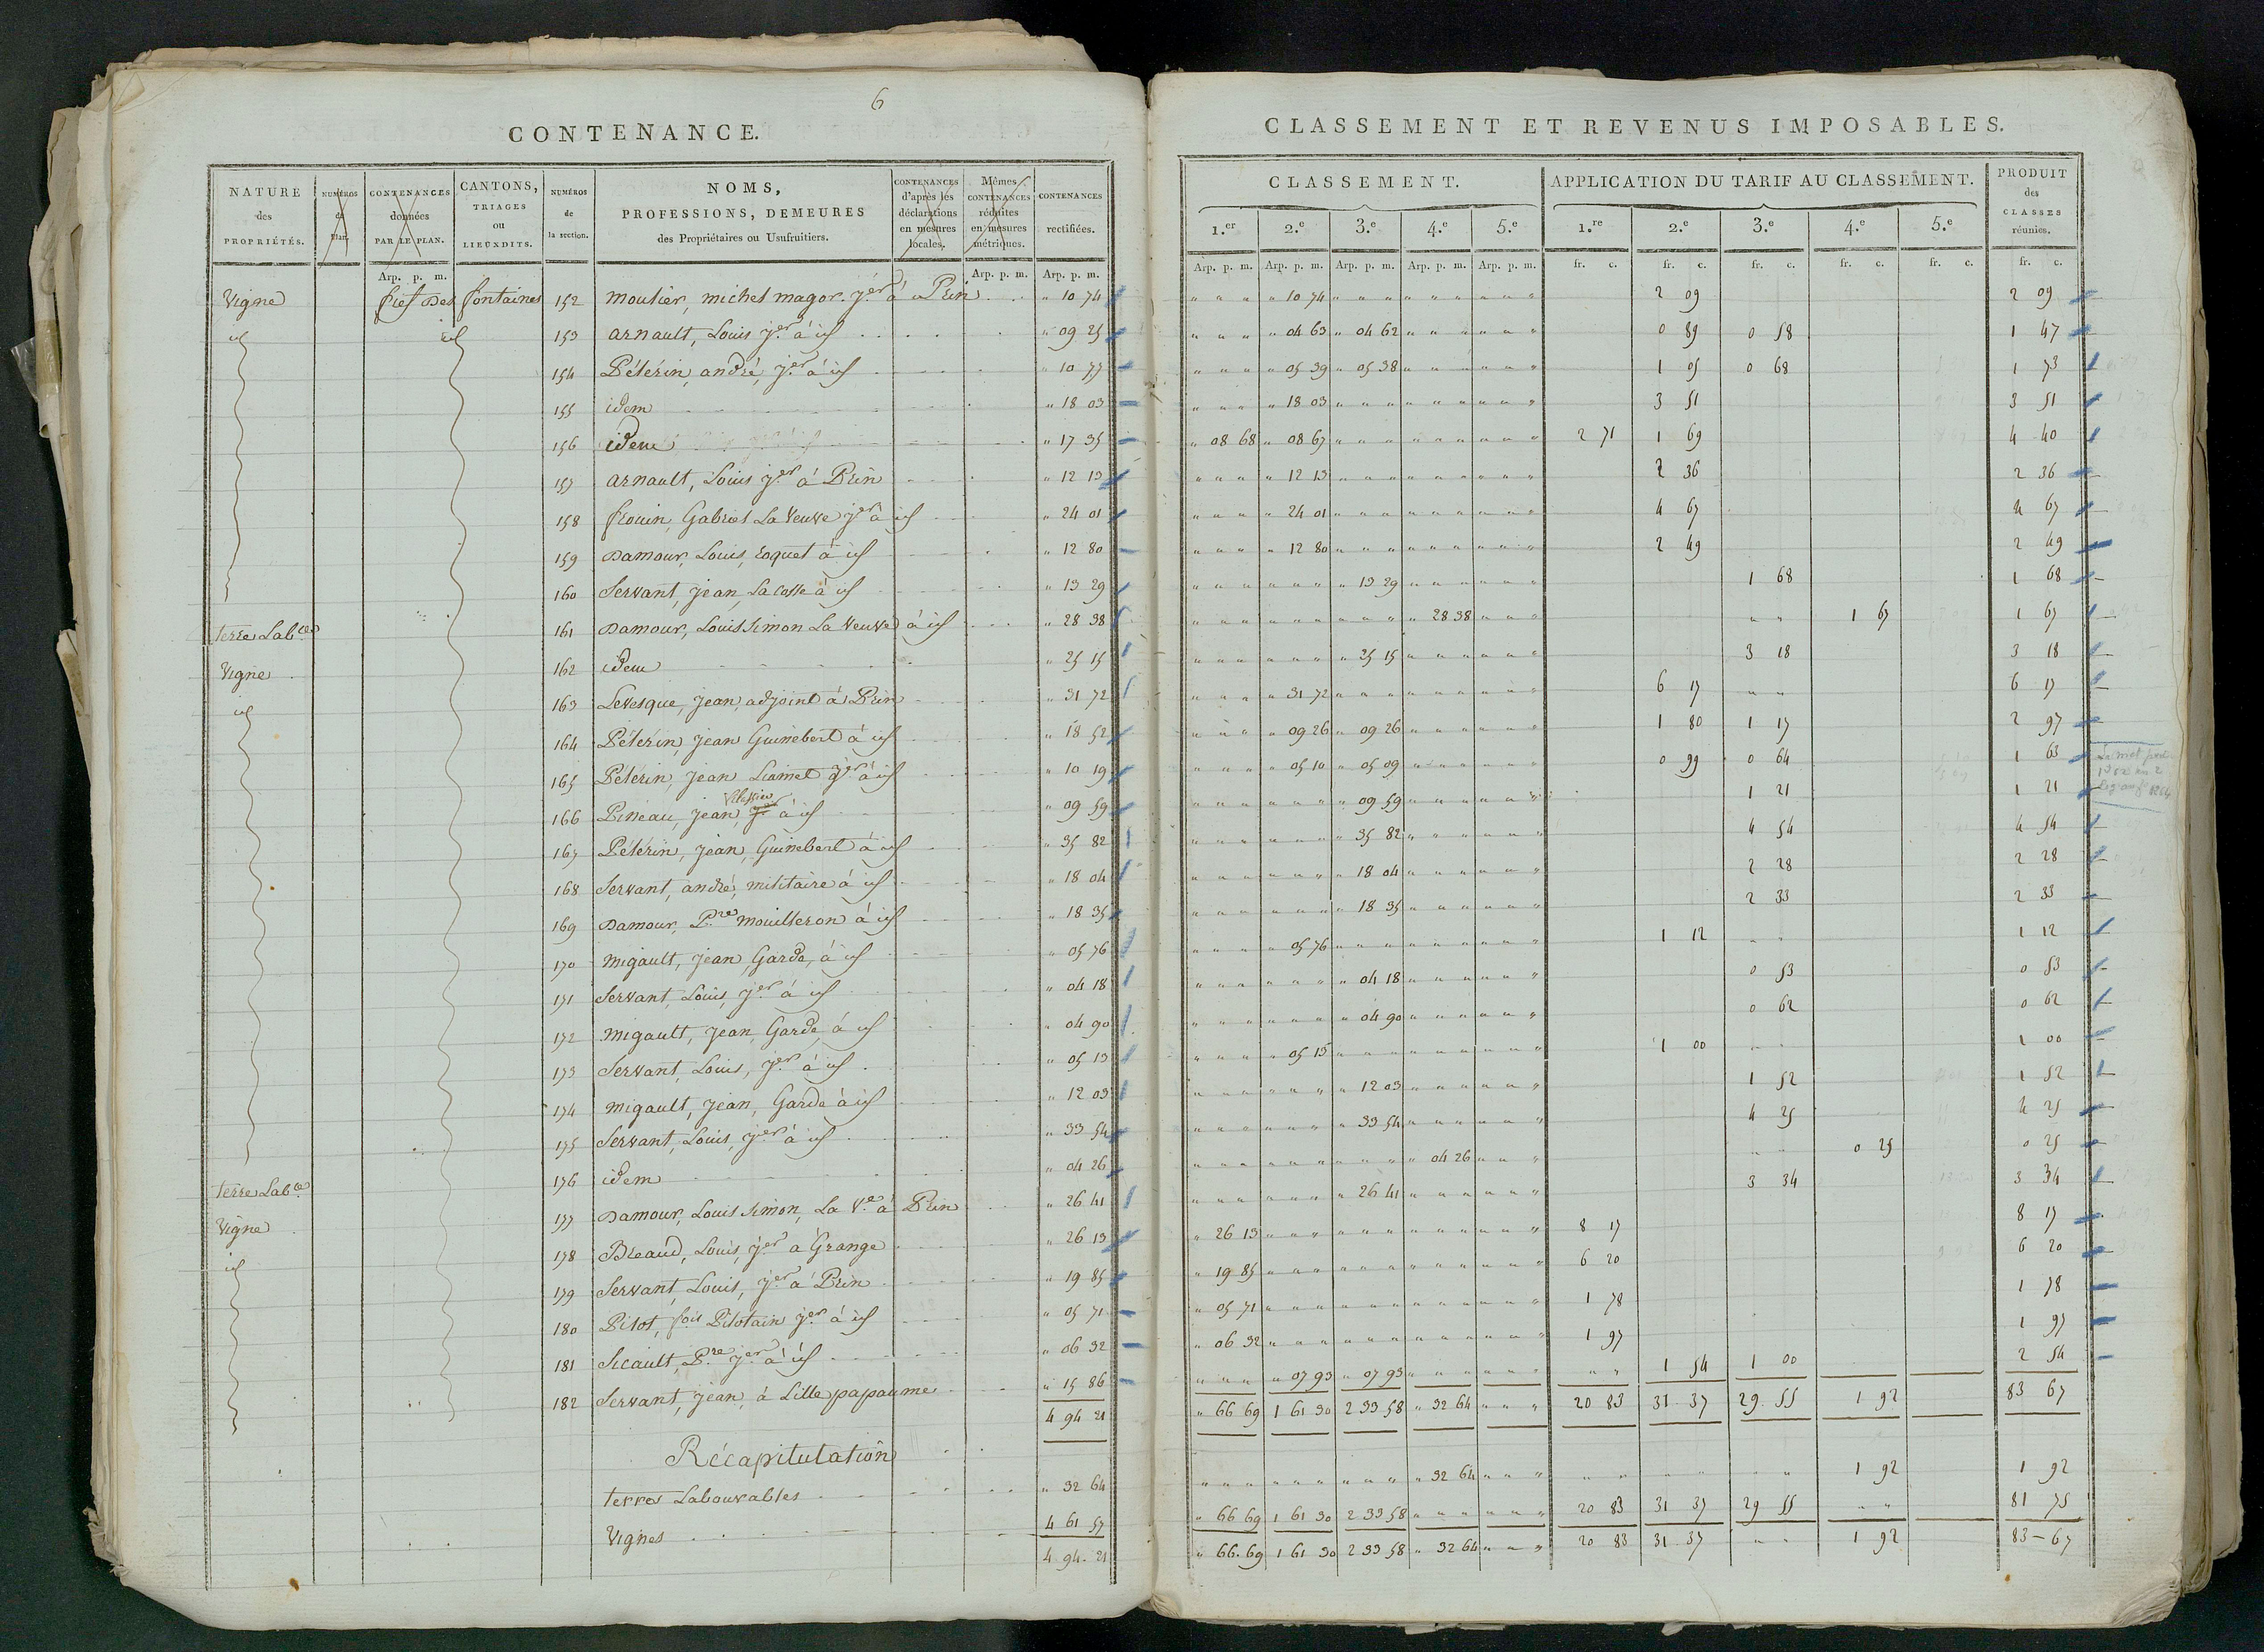 6
CONTENANCE.
NATURE des PROPRIÉTÉS. NUMÉROS du Plan. CONTENANCES données PAR LE PLAN. CANTONS, TRIAGES ou LIEUXDITS. NUMÉROS de la section. NOMS, PROFESSIONS, DEMEURES des Propriétaires ou Usufruitiers. CONTENANCES d'après les déclarations en mesures locales. Mêmes CONTENANCES réduites en mesures métriques. CONTENANCES rectifiées.
Arp. p. m. Arp. p. m. Arp. p. m.
Vigne fief des fontaines 152 moulier, michel magor. jer à Prin " 10 74
id id 153 arnault, Louis jer à id " 09 25
154 Pélérin, andré, jer à id " 10 77
155 idem " 18 03
156 idem " 17 35
157 arnault, Louis jer à Prin " 12 13
158 frouin, Gabriel La Veuve jer à id " 24 01
159 Damour, Louis, roquet à id " 12 80
160 Servant, jean, La cosse à id " 13 29
terre Labce 161 Damour, Louis Simon La Veuve à id " 28 38
Vigne 162 idem " 25 15
id 163 Levesque, jean, adjoint à Prin " 31 72
164 Pélérin, jean Guinebert à id " 18 52
165 Pélérin, jean jer à id " 10 19
166 Pineau, jean, à id " 09 59
167 Pélérin, jean, Guinebert à id " 35 82
168 Servant, andré, militaire à id " 18 04
169 Damour, Pre mouilleron à id " 18 35
170 migault, jean, Garde, à id " 05 76
171 Servant, Louis, jer à id " 04 18
172 migault, jean, Garde, à id " 04 90
173 Servant, Louis, jer à id " 05 13
174 migault, jean, Garde à id " 12 03
175 Servant, Louis, jer à id " 33 54
terre Labce 176 idem " 04 26
Vigne 177 Damour, Louis Simon, La Ve à Prin " 26 41
id 178 Breaud, Louis, jer à Grange " 26 13
179 Servant, Louis, jer à Prin " 19 85
180 Pilot, fois Pilotain jer à id " 05 71
181 Sicault, Pre jer à id " 06 32
182 Servant, jean, à Lille papaume " 15 86
4 94 21
Récapitulation
terres Labourables " 32 64
Vignes 4 61 57
4 94 21
CLASSEMENT ET REVENUS IMPOSABLES.
CLASSEMENT. APPLICATION DU TARIF AU CLASSEMENT. PRODUIT des CLASSES réunies.
1.er 2.e 3.e 4.e 5.e 1.re 2.e 3.e 4.e 5.e
Arp. p. m. Arp. p. m. Arp. p. m. Arp. p. m. Arp. p. m. fr. c. fr. c. fr. c. fr. c. fr. c. fr. c.
" 10 74 2 09 2 09
" 04 63 " 04 62 0 89 0 58 1 47
" 05 39 " 05 38 1 05 0 68 1 73
" 18 03 3 51 3 51
" 08 68 " 08 67 2 71 1 69 4 40
" 12 13 2 36 2 36
" 24 01 4 67 4 67
" 12 80 2 49 2 49
" 13 29 1 68 1 68
" 28 38 1 67 1 67
" 25 15 3 18 3 18
" 31 72 6 17 6 17
" 09 26 " 09 26 1 80 1 17 2 97
" 05 10 " 05 09 0 99 0 64 1 63
" 09 59 1 21 1 21
" 35 82 4 54 4 54
" 18 04 2 28 2 28
" 18 35 2 33 2 33
" 05 76 1 12 1 12
" 04 18 0 53 0 53
" 04 90 0 62 0 62
" 05 13 1 00 1 00
" 12 03 1 52 1 52
" 33 54 4 25 4 25
" 04 26 0 25 0 25
" 26 41 3 34 3 34
" 26 13 8 17 8 17
" 19 85 6 20 6 20
" 05 71 1 78 1 78
" 06 32 1 97 1 97
" 07 93 " 07 93 1 54 1 00 2 54
" 66 69 1 61 30 2 33 58 " 32 64 20 83 31 37 29 55 1 92 83 67
" 32 64 1 92 1 92
" 66 69 1 61 30 2 33 58 20 83 31 37 29 55 81 75
" 66 69 1 61 30 2 33 58 " 32 64 20 83 31 37 " " 1 92 83-67